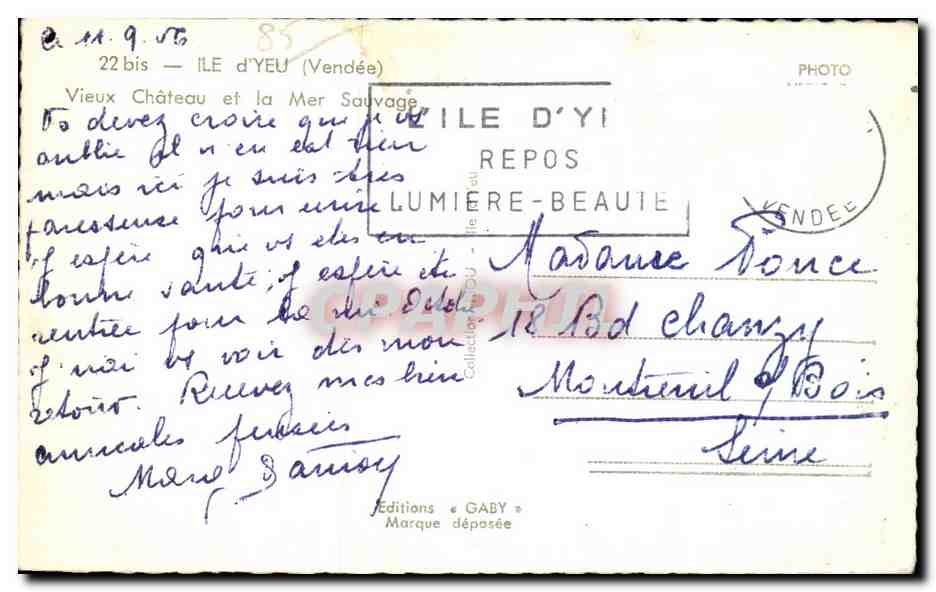 le 11.9.56
85
22 bis — ILE d'YEU (Vendée)
Vieux Château et la Mer Sauvage
PHOTO
L'ILE D'Y
REPOS
LUMIERE-BEAUTE
VENDEE
Vs devez croire que je vs
oublie il n'en est rien
mais ici je suis très
paresseuse pour écrire
J'espère que vs êtes en
bonne santé, j'espère être
rentrée pour la mi Octobre
J'irai vs voir dès mon
retour. Recevez mes bien
amicales pensées
Madame Ponce
18 Bd Chanzy
Montreuil s/ Bois
Seine
Editions « GABY »
Marque déposée
CPAPHIL